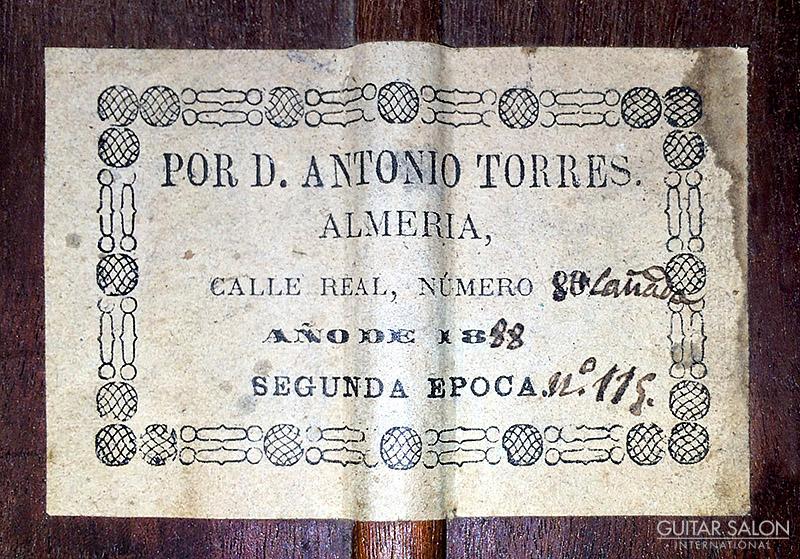 POR D. ANTONIO TORRES.
ALMERIA,
CALLE REAL, NÚMERO 80 Cañada
AÑO DE 1888
SEGUNDA EPOCA. nº. 115.
GUITAR SALON
INTERNATIONAL